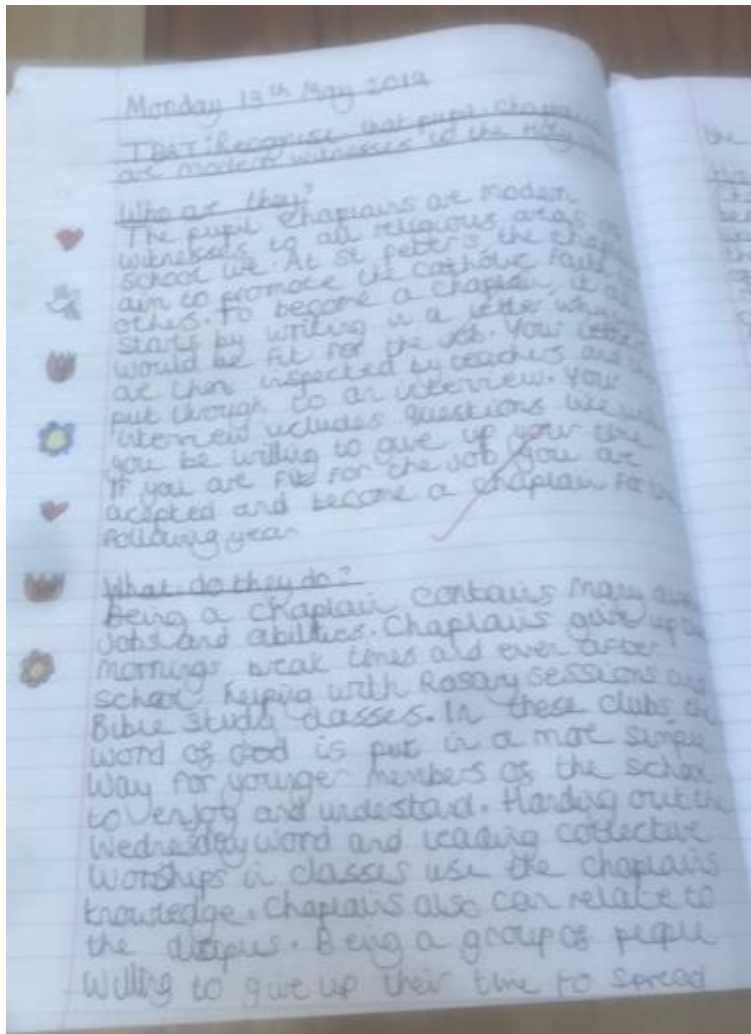 Monday 13th May 2019
TBAT: Recognise that pupil
are modern witnesses to the Holy
Who are they?
The pupil Chaplains are modern
witnesses to all religious
school life. At St Peter's, the
aim to promote the Catholic Faith
others. To become a chaplain, it all
starts by writing in a letter why
would be fit for the job. Your
are then inspected by teachers and
put through to an interview. Your
interview includes questions like
you be willing to give up your time
If you are fit for the job you are
accepted and become a chaplain for the
following year
What do they do?
Being a chaplain contains many
jobs and abilities. Chaplains give up
mornings break times and even after
school helping with Rosary sessions and
Bible study classes. In these clubs the
word of God is put in a more simple
way for younger members of the school
to enjoy and understand. Handing out the
Wednesday word and leading collective
worships in classes use the chaplains
knowledge. Chaplains also can relate to
the . Being a group of people
willing to give up their time to spread
the